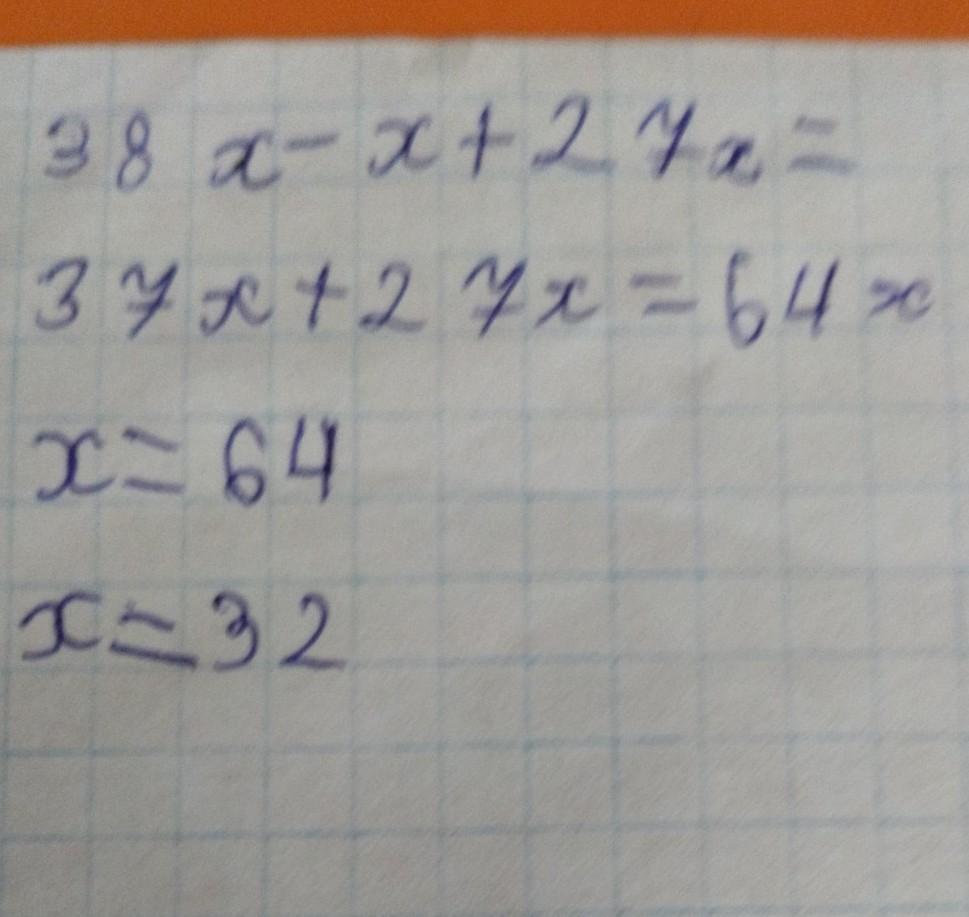 38x-x+27x=
37x+27x=64x
x=64
x=32